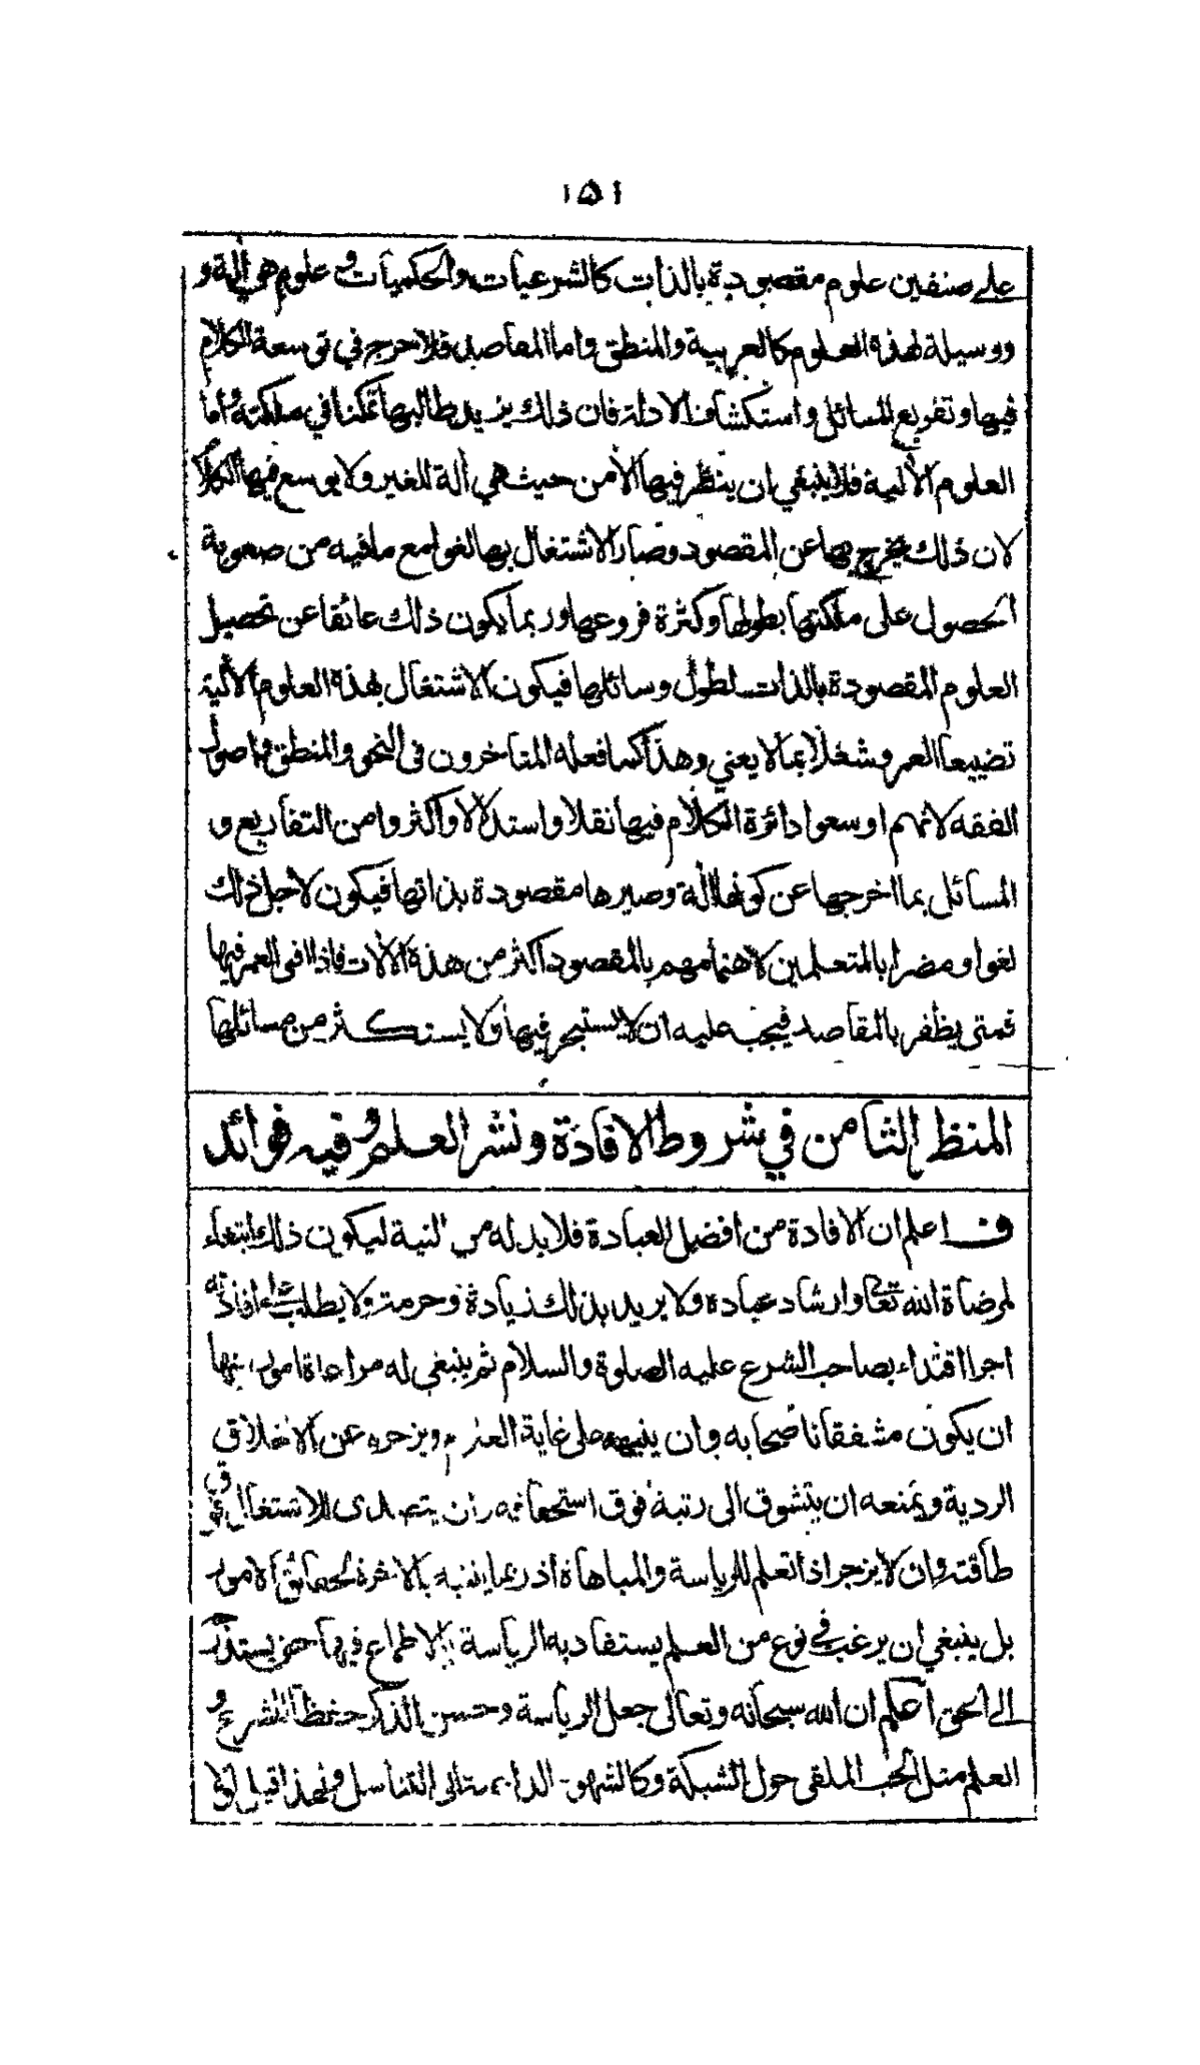 ١٥١
على صنفين علوم مقصودة بالذات كالشرعيات والحكميات و علوم هي آلة و
ووسيلة لهذه العلوم كالعربية والمنطق واما المقاصد فلا حرج في توسعة الكلام
فيها وتفريع المسائل واستكشاف الادلة فان ذلك يزيد طالبها تمكنا في ملكته واما
العلوم الآلية فلا ينبغي ان ينظر فيها الا من حيث هي آلة للغير ولا يوسع فيها الكلام
لان ذلك يخرج بها عن المقصود وصار الاشتغال بها لغوا مع ما فيه من صعوبة
الحصول على ملكتها بطولها وكثرة فروعها وربما يكون ذلك عائقا عن تحصيل
العلوم المقصودة بالذات لطول وسائلها فيكون الاشتغال بهذه العلوم الآلية
تضييعا العمر وشغلا بما لا يعني وهذا كما فعله المتاخرون في النحو والمنطق واصول
الفقه لانهم اوسعوا دائرة الكلام فيها نقلا واستدلالا واكثروا من التفاريع و
المسائل بما اخرجها عن كونها آلة وصيرها مقصودة بذاتها فيكون لاجل ذلك
لغوا ومضرا بالمتعلمين لاهتمامهم بالمقصود اكثر من هذه الآلات فاذا افنى العمر فيها
فمتى يظفر بالمقاصد فيجب عليه ان لا يستبحر فيها ولا يستكثر من مسائلها
المنظر الثامن في شروط الافادة ونشر العلم وفيه فوائد
ف اعلم ان الافادة من افضل العبادة فلا بد له من النية ليكون ذلك ابتغاء
لمرضاة الله تعالى وارشاد عباده ولا يريد بذلك زيادة وحرمة ولا يطلب على افادته
اجرا اقتداء بصاحب الشرع عليه الصلوة والسلام ثم ينبغي له مراعاة امور منها
ان يكون مشفقا ناصحا به وان ينبهه على غاية العلم ويزجره عن الاخلاق
الردية ويمنعه ان يتشوق الى رتبة فوق استحقاقه وان يتصدى للاشتغال فوق
طاقته وان لا يزجر اذا تعلم للرياسة والمباهاة اذ ربما ينتبه بالاخرة لحقائق الامور
بل ينبغي ان يرغب في نوع من العلم يستفاد به الرياسة بالاطماع فيها حتى يستدرجه
الى الحق اعلم ان الله سبحانه وتعالى جعل الرياسة وحسن الذكر حفظا للشرع و
العلم مثل الحب الملقى حول الشبكة وكالشهوة الداعية الى التناسل ولهذا قيل لولا